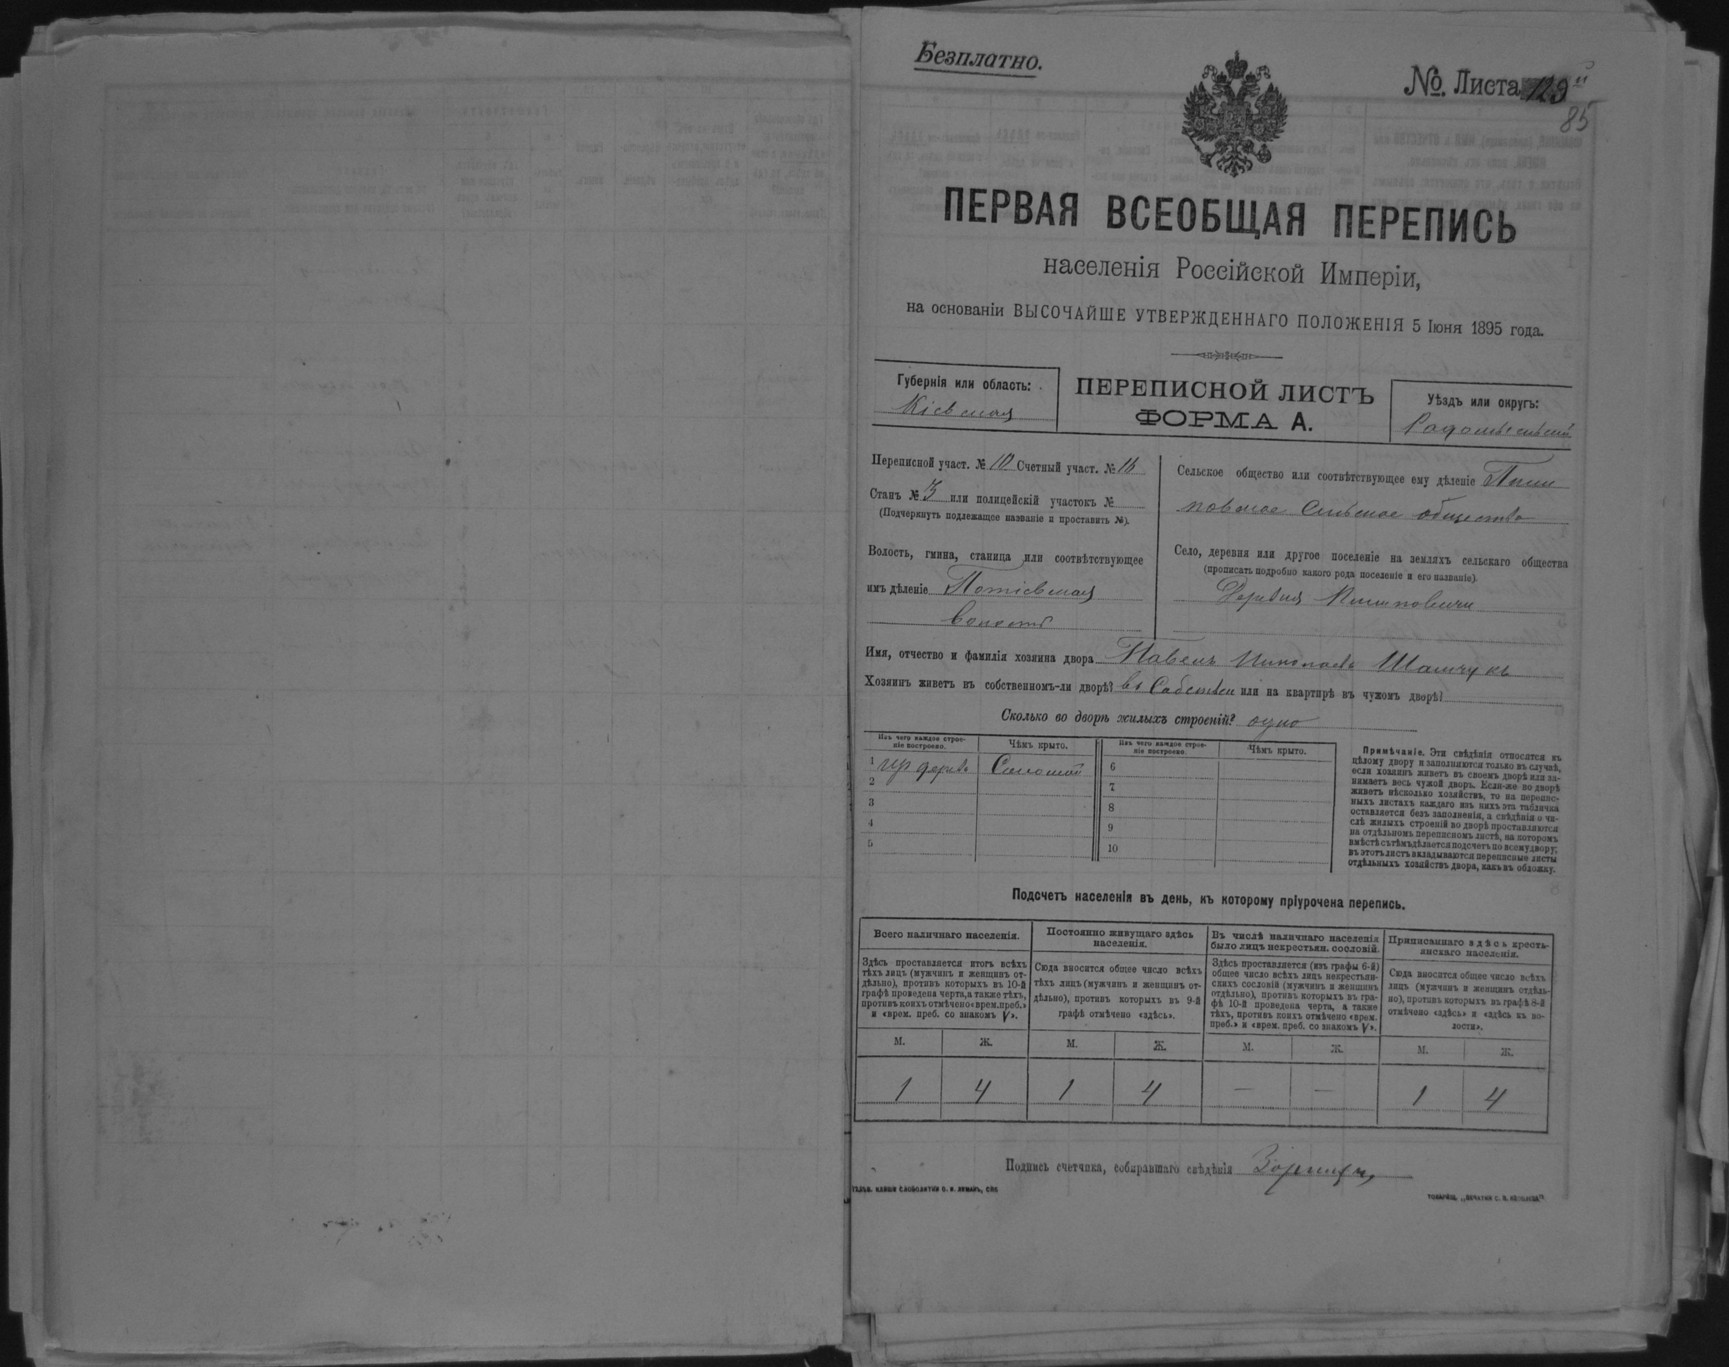 Безплатно.
№. Листа 129
85
ПЕРВАЯ ВСЕОБЩАЯ ПЕРЕПИСЬ
населенія Россійской Имперіи,
на основаніи ВЫСОЧАЙШЕ УТВЕРЖДЕННАГО ПОЛОЖЕНІЯ 5 Іюня 1895 года.
Губернія или область:
Кіевская
ПЕРЕПИСНОЙ ЛИСТЪ
ФОРМА А.
Уѣздъ или округъ:
Радомысльскій
Переписной участ. № 10 Счетный участ. № 16
Станъ № 3 или полицейскій участокъ №
(Подчеркнуть подлежащее названіе и проставить №).
Волость, гмина, станица или соотвѣтствующее
имъ дѣленіе Потіевская
волость
Сельское общество или соотвѣтствующее ему дѣленіе
повское Сельское общество
Село, деревня или другое поселеніе на земляхъ сельскаго общества
(прописать подробно какого рода поселеніе и его названіе).
Деревня
Имя, отчество и фамилія хозяина двора Павелъ Николаевъ Шамчукъ
Хозяинъ живетъ въ собственномъ-ли дворѣ? въ Собствен или на квартирѣ въ чужомъ дворѣ?
Сколько во дворѣ жилыхъ строеній? одно
Изъ чего каждое строеніе построено.
Чѣмъ крыто.
Изъ чего каждое строеніе построено.
Чѣмъ крыто.
1 изъ дерева Соломой
2
3
4
5
6
7
8
9
10
Примѣчаніе. Эти свѣдѣнія относятся къ
цѣлому двору и заполняются только въ случаѣ,
если хозяинъ живетъ въ своемъ дворѣ или за-
нимаетъ весь чужой дворъ. Если-же во дворѣ
живетъ нѣсколько хозяйствъ, то на перепис-
ныхъ листахъ каждаго изъ нихъ эта табличка
оставляется безъ заполненія, а свѣдѣнія о чи-
слѣ жилыхъ строеній во дворѣ проставляются
на отдѣльномъ переписномъ листѣ, на которомъ
вмѣстѣ съ тѣмъ дѣлается подсчетъ по всему двору;
въ этотъ листъ вкладываются переписные листы
отдѣльныхъ хозяйствъ двора, какъ въ обложку.
Подсчетъ населенія въ день, къ которому пріурочена перепись.
Всего наличнаго населенія.
Здѣсь проставляется итогъ всѣхъ
тѣхъ лицъ (мужчинъ и женщинъ от-
дѣльно), противъ которыхъ въ 10-й
графѣ проведена черта, а также тѣхъ,
противъ коихъ отмѣчено «врем. преб.»
и «врем. преб. со знакомъ V».
Постоянно живущаго здѣсь
населенія.
Сюда вносится общее число всѣхъ
тѣхъ лицъ (мужчинъ и женщинъ от-
дѣльно), противъ которыхъ въ 9-й
графѣ отмѣчено «здѣсь».
Въ числѣ наличнаго населенія
было лицъ некрестьян. сословій.
Здѣсь проставляется (изъ графы 6-й)
общее число всѣхъ лицъ некрестьян-
скихъ сословій (мужчинъ и женщинъ
отдѣльно), противъ которыхъ въ гра-
фѣ 10-й проведена черта, а также
тѣхъ, противъ коихъ отмѣчено «врем.
преб.» и «врем. преб. со знакомъ V».
Приписаннаго здѣсь кресть-
янскаго населенія.
Сюда вносится общее число всѣхъ
лицъ (мужчинъ и женщинъ отдѣль-
но), противъ которыхъ въ графѣ 8-й
отмѣчено «здѣсь» и «здѣсь къ во-
лости».
М. Ж. М. Ж. М. Ж. М. Ж.
1 4 1 4 — — 1 4
Подпись счетчика, собиравшаго свѣдѣнія